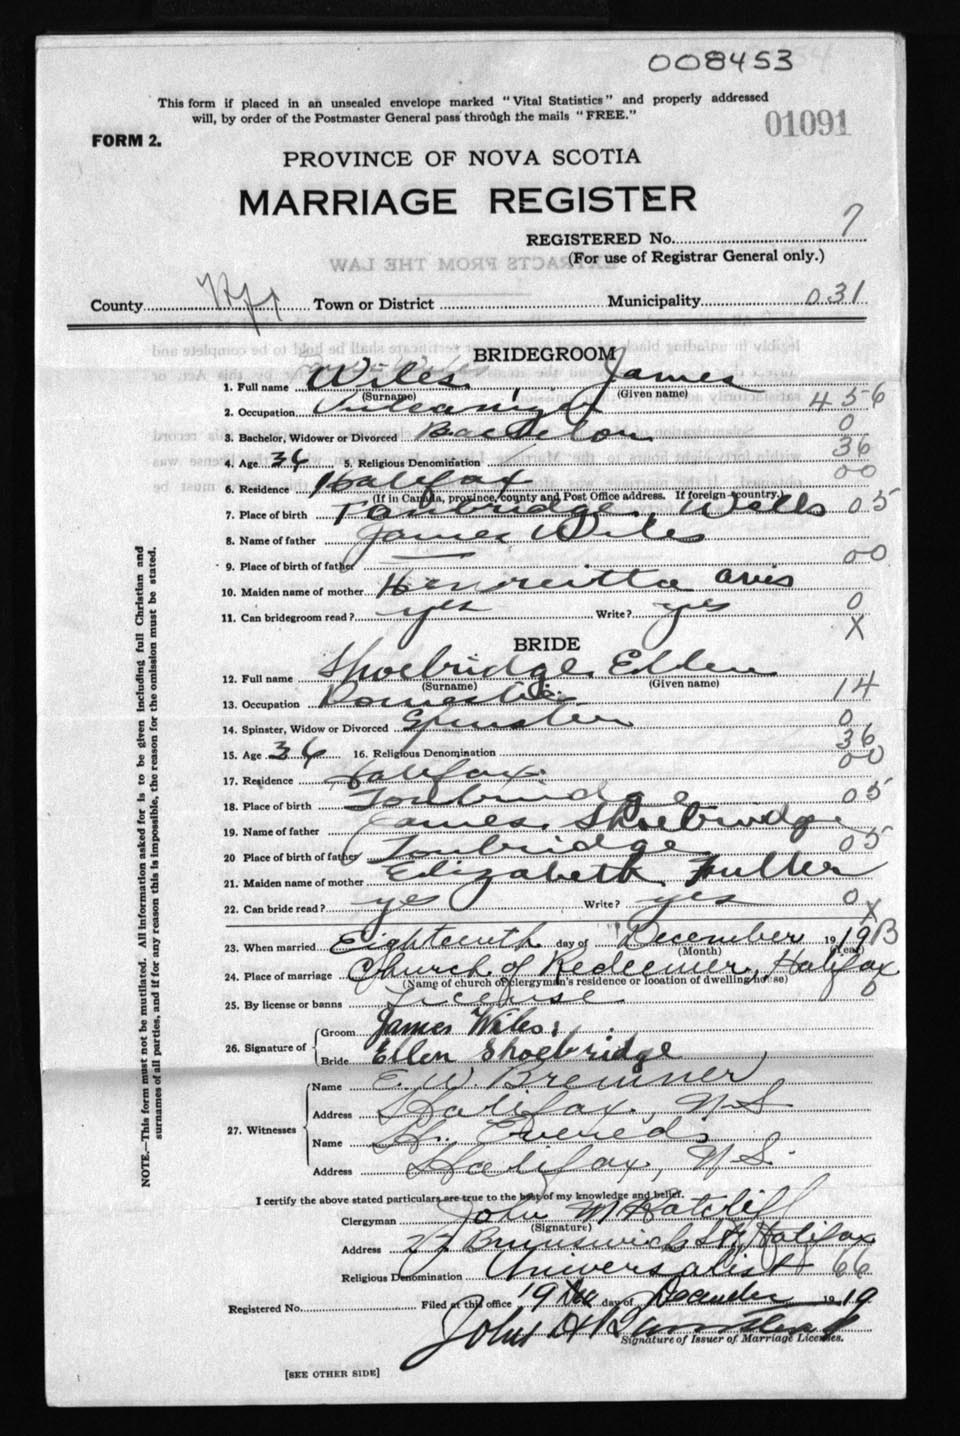 008453
This form if placed in an unsealed envelope marked "Vital Statistics" and properly addressed
will, by order of the Postmaster General pass through the mails "FREE."
01091
FORM 2.
PROVINCE OF NOVA SCOTIA
MARRIAGE REGISTER
REGISTERED No. 7
(For use of Registrar General only.)
EXTRACTS FROM THE LAW
County Hfx Town or District Municipality 031
BRIDEGROOM
1. Full name Wiles, James
(Surname) (Given name)
2. Occupation Vulcanizer 456
3. Bachelor, Widower or Divorced Bachelor 0
4. Age 36 5. Religious Denomination 36
6. Residence Halifax 00
(If in Canada, province, county and Post Office address. If foreign—country.)
7. Place of birth Tonbridge, Wells 05
8. Name of father James Wiles
9. Place of birth of father — 00
10. Maiden name of mother Henrietta Avis
11. Can bridegroom read? yes Write? yes 0
X
BRIDE
12. Full name Shoebridge, Ellen
(Surname) (Given name)
13. Occupation Domestic 14
14. Spinster, Widow or Divorced Spinster 0
15. Age 36 16. Religious Denomination 36
17. Residence Halifax 00
18. Place of birth Tonbridge 05
19. Name of father James Shoebridge
20 Place of birth of father Tonbridge 05
21. Maiden name of mother Elizabeth Fuller
22. Can bride read? yes Write? yes 0
X
23. When married Eighteenth day of December 1919 B
(Month) (Year)
24. Place of marriage Church of Redeemer, Halifax
(Name of church or clergyman's residence or location of dwelling house)
25. By license or banns License 0
26. Signature of Groom James Wiles
Bride Ellen Shoebridge
27. Witnesses Name E. W. Bremner
Address Halifax, N.S
Name H. Evered
Address Halifax, N.S.
I certify the above stated particulars are true to the best of my knowledge and belief.
Clergyman John M Ratcliff
(Signature)
Address Brunswick St, Halifax
Religious Denomination Universalist 66
Registered No. Filed at this office 19 Dec day of December 1919
John
Signature of Issuer of Marriage Licenses.
[SEE OTHER SIDE]
NOTE.—This form must not be mutilated. All information asked for is to be given including full Christian and
surnames of all parties, and if for any reason this is impossible, the reason for the omission must be stated.